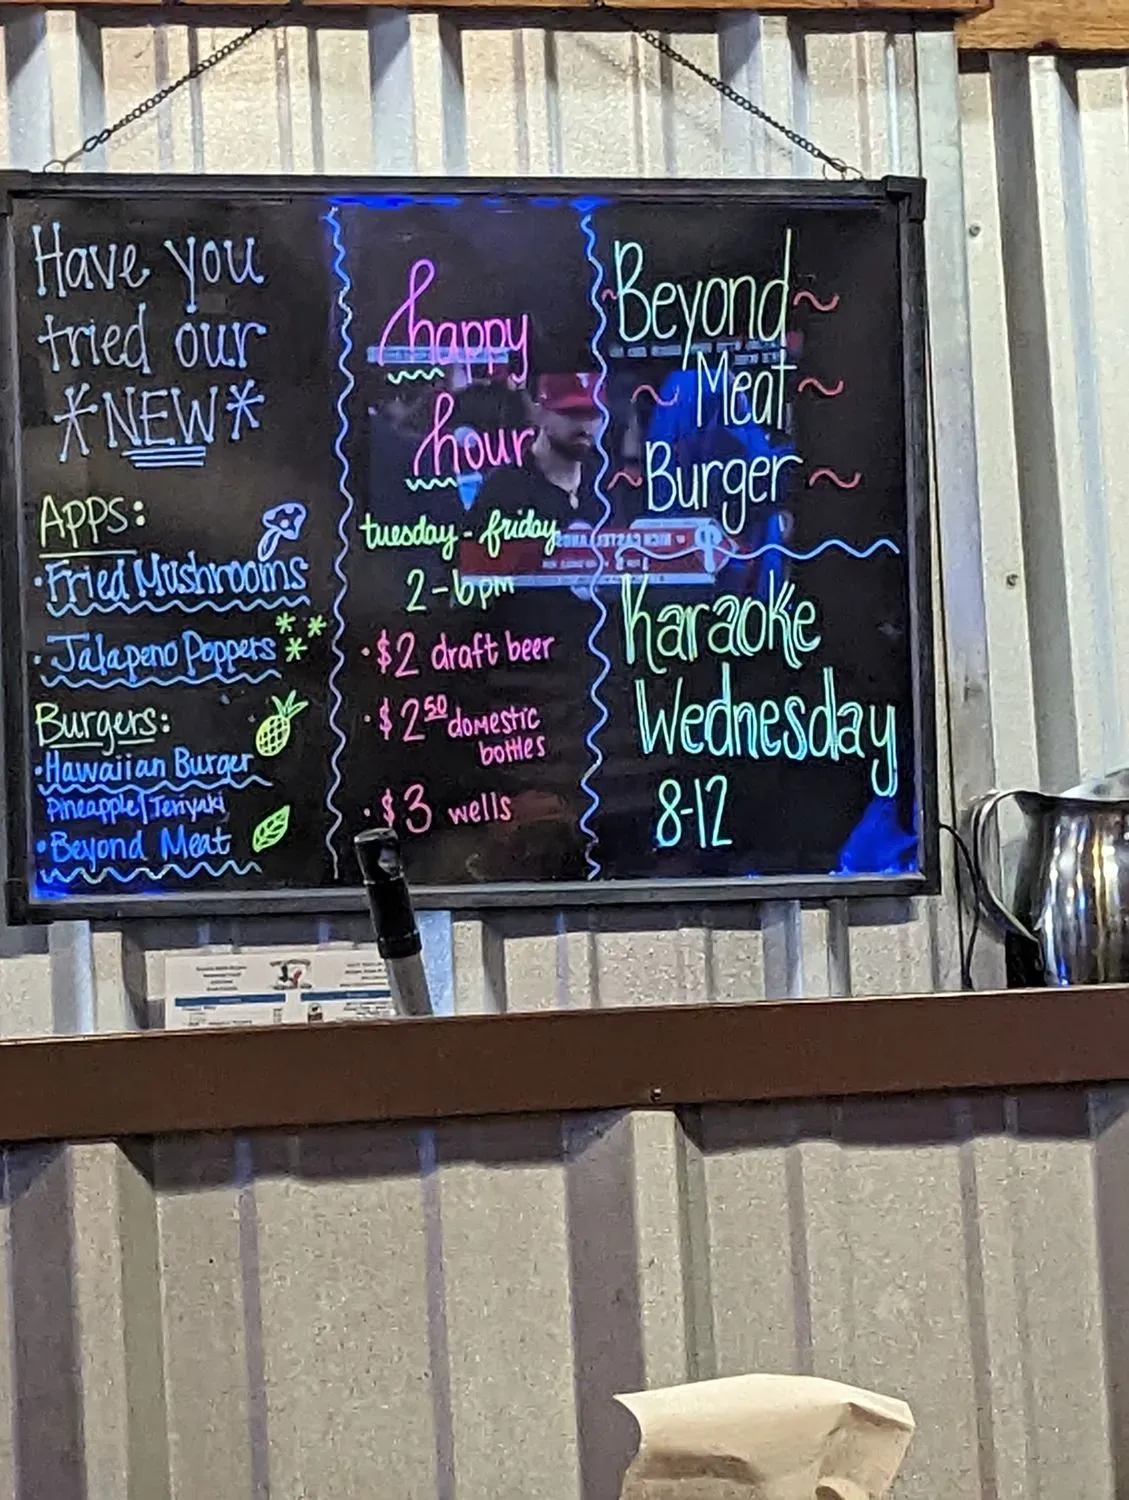 Have you
tried our
*NEW*
APPS:
• Fried Mushrooms
• Jalapeno Poppers
Burgers:
• Hawaiian Burger
Pineapple | Teriyaki
• Beyond Meat
happy
hour
tuesday - friday
2 - 6pm
• $2 draft beer
• $2 50 domestic
bottles
• $3 wells
~ Beyond ~
~ Meat ~
~ Burger ~
Karaoke
Wednesday
8-12